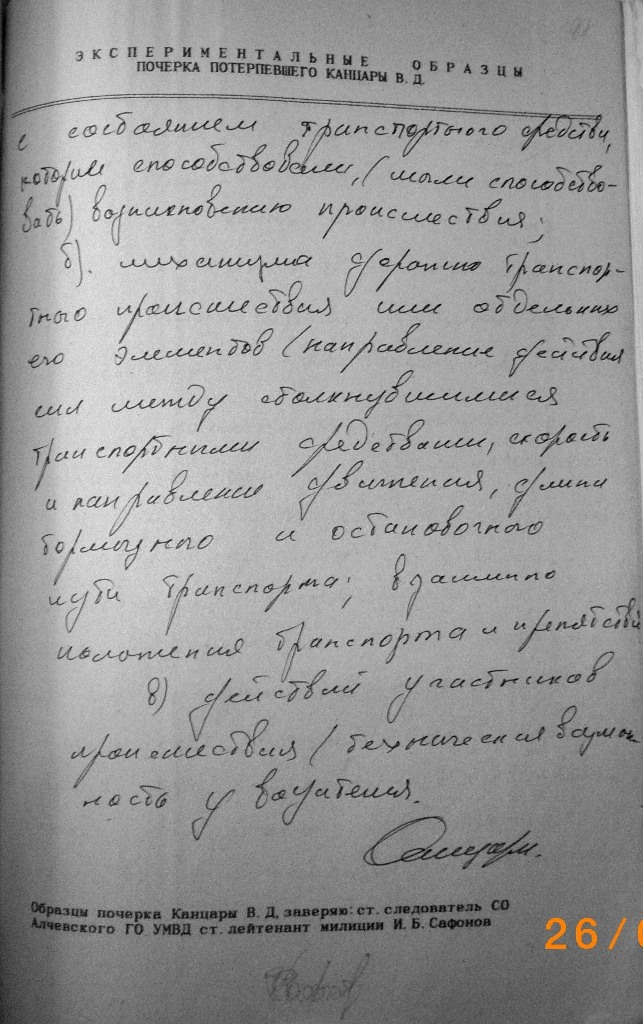 ЭКСПЕРИМЕНТАЛЬНЫЕ ОБРАЗЦЫ
ПОЧЕРКА ПОТЕРПЕВШЕГО КАНЦАРЫ В. Д.
с состоянием транспортного средства,
которые способствовали, (могли способство-
вать) возникновению происшествия;
б). механизма дорожно транспор-
тного происшествия или отдельных
его элементов (направление действия
сил между столкнувшимися
транспортными средствами, скорость
и направление движения, длина
тормозного и остановочного
пути транспорта; взаимно
положения транспорта и препятствия
в) действий участников
происшествия (техническая возмож
ность у водителя.
Образцы почерка Канцары В. Д. заверяю: ст. следователь СО
Алчевского ГО УМВД ст. лейтенант милиции И. Б. Сафонов
26/0